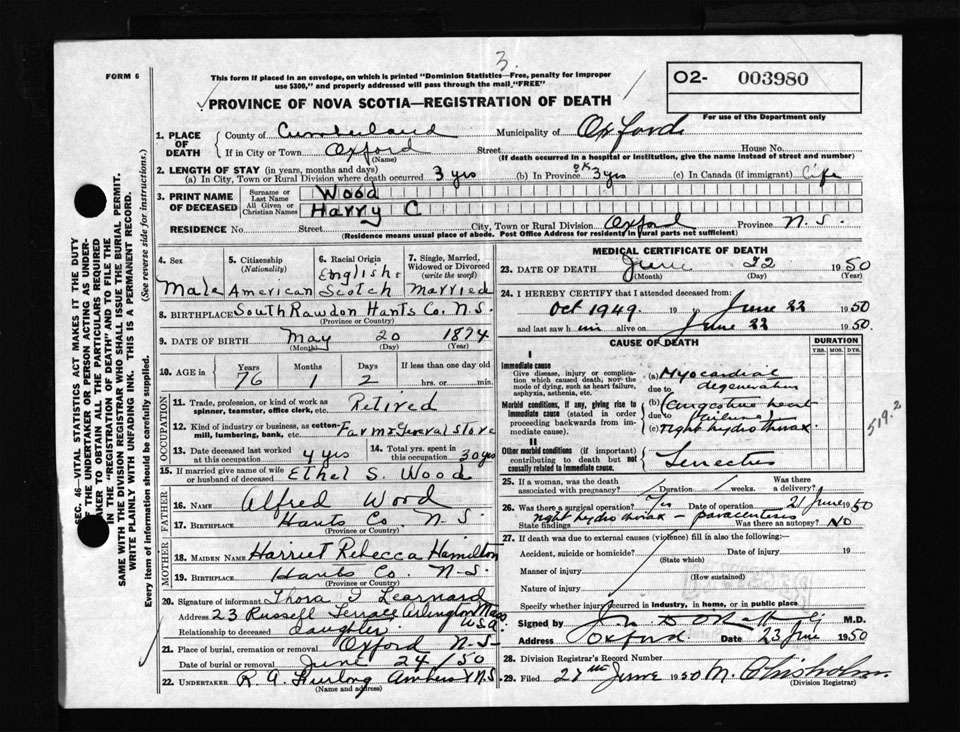 3.
FORM 6
This form if placed in an envelope, on which is printed "Dominion Statistics—Free, penalty for improper
use $300," and properly addressed will pass through the mail, "FREE"
O2- 003980
For use of the Department only
PROVINCE OF NOVA SCOTIA—REGISTRATION OF DEATH
1. PLACE OF DEATH
County of Cumberland Municipality of Oxford
If in City or Town Oxford Street House No.
(Name) (If death occurred in a hospital or institution, give the name instead of street and number)
2. LENGTH OF STAY (in years, months and days)
(a) In City, Town or Rural Division where death occurred 3 yrs (b) In Province 3 yrs (c) In Canada (if immigrant) Life
3. PRINT NAME OF DECEASED
Surname or Last Name Wood
All Given or Christian Names Harry C
RESIDENCE No. Street City, Town or Rural Division Oxford Province N.S.
(Residence means usual place of abode. Post Office Address for residents in rural parts not sufficient)
4. Sex Male
5. Citizenship (Nationality) American
6. Racial Origin English & Scotch
7. Single, Married, Widowed or Divorced (write the word) Married
8. BIRTHPLACE South Rawdon Hants Co. N.S.
(Province or Country)
9. DATE OF BIRTH May 20 1874
(Month) (Day) (Year)
10. AGE in Years 76 Months 1 Days 2 If less than one day old
hrs. or min.
OCCUPATION
11. Trade, profession, or kind of work as spinner, teamster, office clerk, etc. Retired
12. Kind of industry or business, as cotton-mill, lumbering, bank, etc. Farm & General Store
13. Date deceased last worked at this occupation 4 yrs
14. Total yrs. spent in this occupation 30 yrs
15. If married give name of wife or husband of deceased Ethel S. Wood
FATHER
16. NAME Alfred Wood
17. BIRTHPLACE Hants Co N.S.
(Province or Country)
MOTHER
18. MAIDEN NAME Harriet Rebecca Hamilton
19. BIRTHPLACE Hants Co. N.S.
(Province or Country)
20. Signature of informant Thora I Learnard
Address 23 Russell Terrace Arlington Mass
U.S.A.
Relationship to deceased daughter
21. Place of burial, cremation or removal Oxford N.S.
Date of burial or removal June 24/50
22. UNDERTAKER R. A. Furlong Amherst N.S.
(Name and address)
MEDICAL CERTIFICATE OF DEATH
23. DATE OF DEATH June 22 1950
(Month) (Day) (Year)
24. I HEREBY CERTIFY that I attended deceased from:
Oct 1949 19 to June 22 1950
and last saw him alive on June 22 1950.
CAUSE OF DEATH
DURATION
YRS. MOS. DYS.
I
Immediate cause
Give disease, injury or complication which caused death, not the mode of dying, such as heart failure, asphyxia, asthenia, etc.
(a) Myocardial
due to degeneration
Morbid conditions, if any, giving rise to immediate cause (stated in order proceeding backwards from immediate cause).
(b) Congestive heart
due to failure
(c) right hydrothorax.
519.2
II
Other morbid conditions (if important) contributing to death but not causally related to immediate cause.
Senectus
25. If a woman, was the death associated with pregnancy? Duration weeks. Was there a delivery?
26. Was there a surgical operation? Yes Date of operation 21 June 1950
State findings right hydrothorax - paracentesis Was there an autopsy? No
27. If death was due to external causes (violence) fill in also the following:—
Accident, suicide or homicide? Date of injury 19
(State which)
Manner of injury
(How sustained)
Nature of injury
Specify whether injury occurred in industry, in home, or in public place
Signed by M.D.
Address Oxford. Date 23 June 1950
28. Division Registrar's Record Number
29. Filed 27th June 1950 M. Chisholm
(Division Registrar)
SEC. 46—VITAL STATISTICS ACT MAKES IT THE DUTY
OF THE UNDERTAKER OR PERSON ACTING AS UNDERTAKER TO OBTAIN ALL THE PARTICULARS REQUIRED
IN THE "REGISTRATION OF DEATH" AND TO FILE THE
SAME WITH THE DIVISION REGISTRAR WHO SHALL ISSUE THE BURIAL PERMIT.
WRITE PLAINLY WITH UNFADING INK. THIS IS A PERMANENT RECORD.
Every item of information should be carefully supplied. (See reverse side for instructions.)